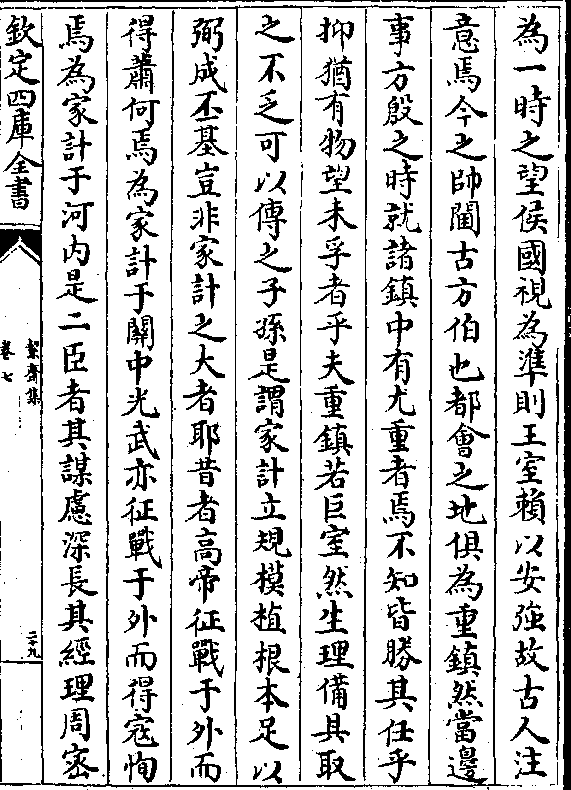 為一時之望侯國視為準則王室賴以安强故古人注
意焉今之帥閫古方伯也都會之地俱為重鎮然當邊
事方殷之時就諸鎮中有尤重者焉不知皆勝其任乎
抑猶有物望未孚者乎夫重鎮若巨室然生理備具取
之不乏可以傳之子孫是謂家計立規模植根本足以
弼成丕基豈非家計之大者耶昔者高帝征戰于外而
得蕭何焉為家計于關中光武亦征戰于外而得寇恂
焉為家計于河内是二臣者其謀慮深長其經理周宻
欽定四庫全書
絜齋集
卷七
二十九